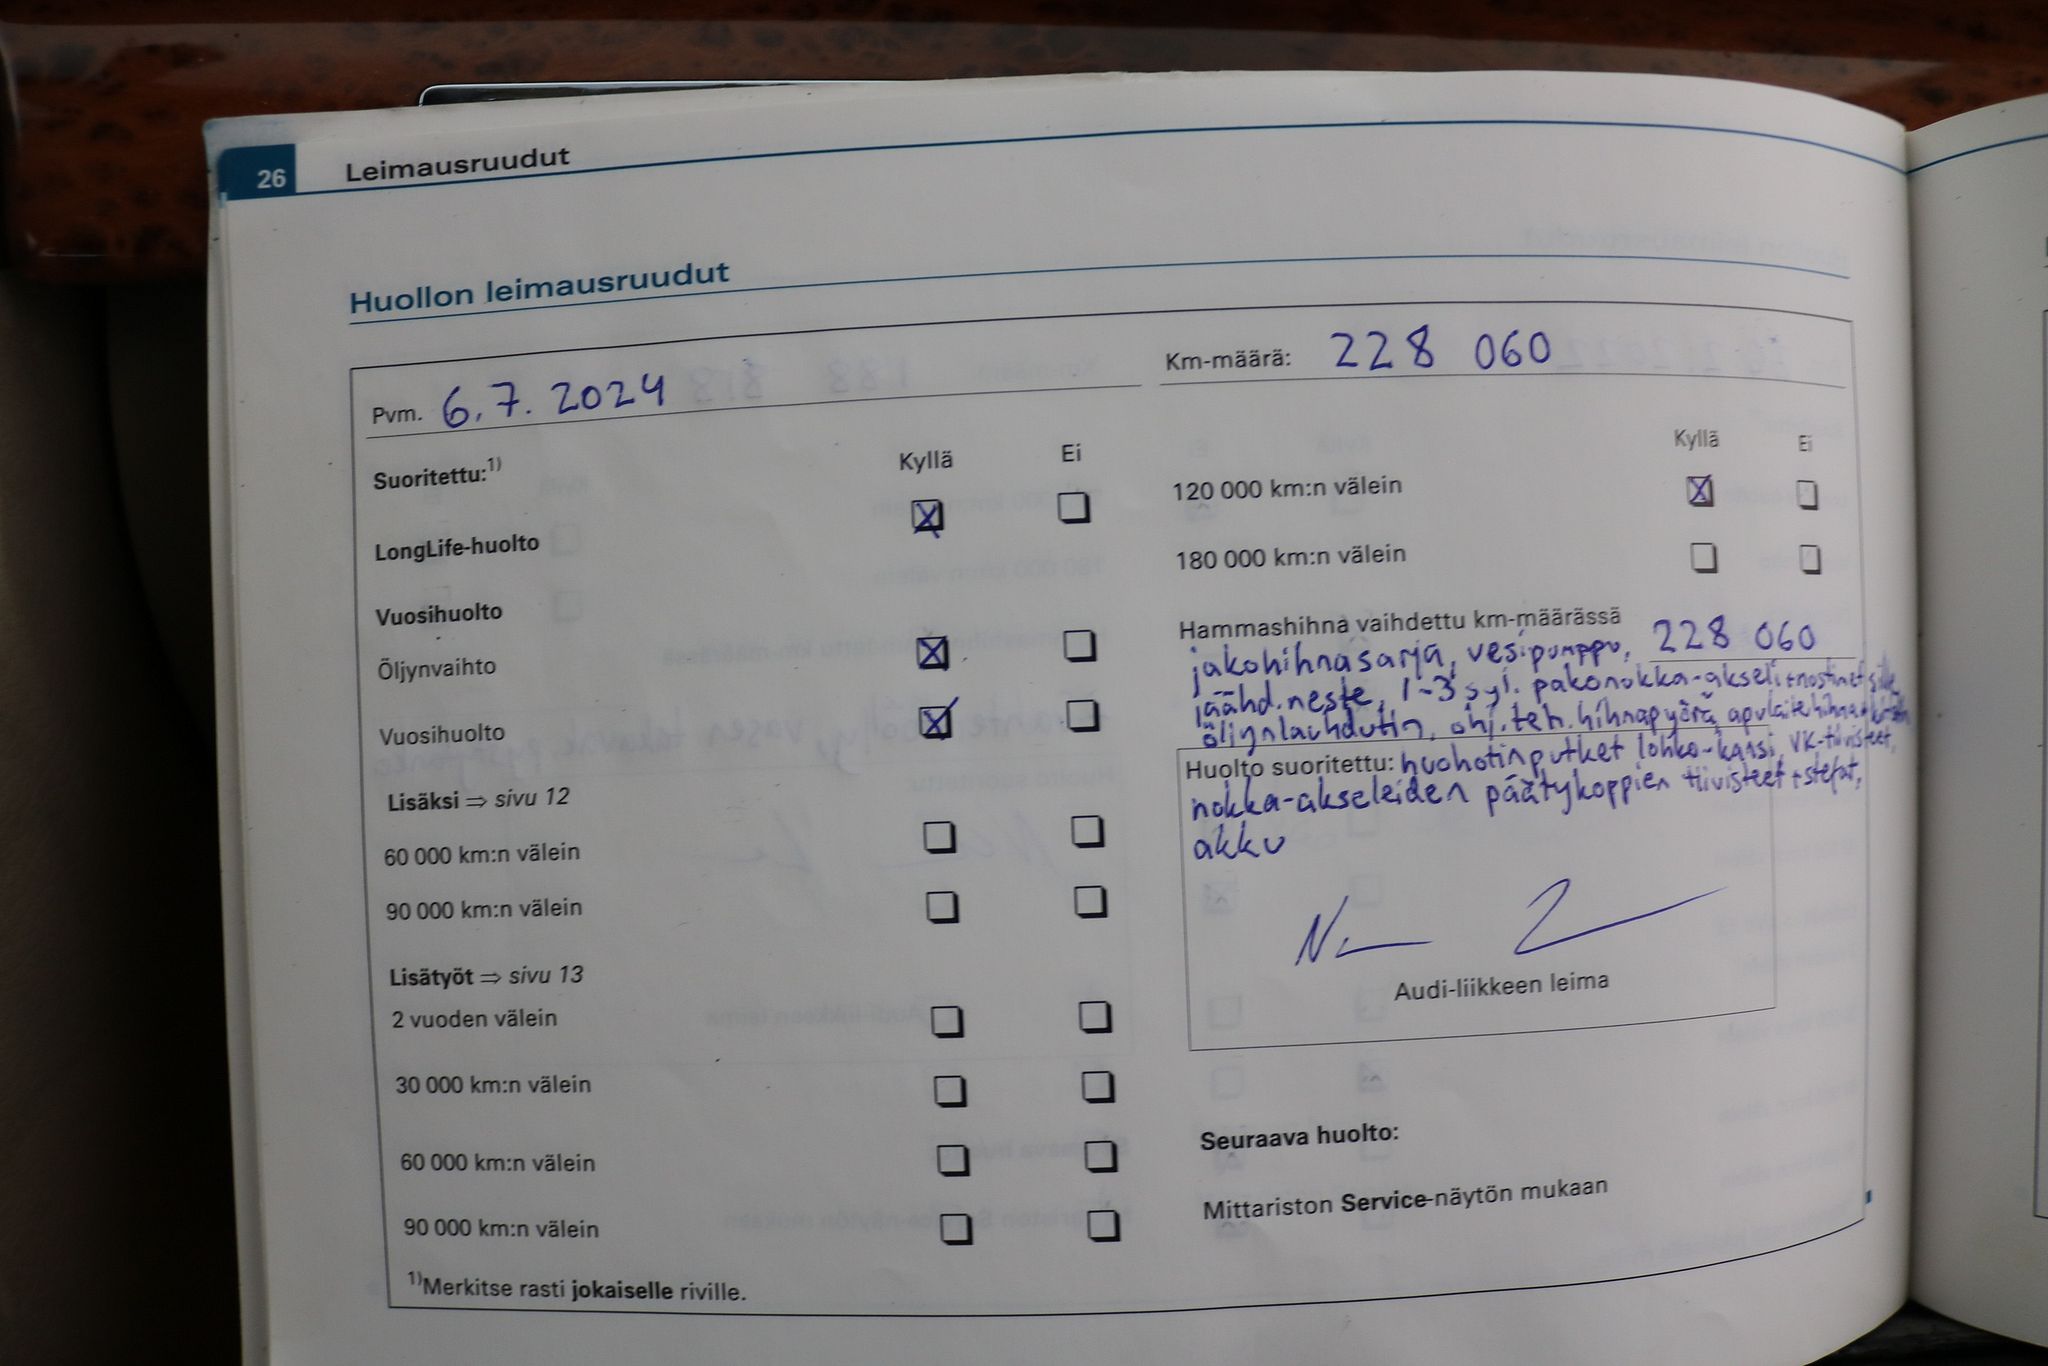 26 Leimausruudut
Huollon leimausruudut
Pvm. 6.7.2024
Km-määrä: 228 060
Suoritettu:1) Kyllä Ei
LongLife-huolto
Vuosihuolto
Öljynvaihto
Vuosihuolto
Lisäksi ⇒ sivu 12
60 000 km:n välein
90 000 km:n välein
Lisätyöt ⇒ sivu 13
2 vuoden välein
30 000 km:n välein
60 000 km:n välein
90 000 km:n välein
1)Merkitse rasti jokaiselle riville.
Kyllä Ei
120 000 km:n välein
180 000 km:n välein
Hammashihna vaihdettu km-määrässä
jakohihnasarja, vesipumppu, 228 060
jäähd.neste, 1-3 syl. pakonokka-akseli+nostimet
öljynlauhdutin, ohj.teh.hihnapyörä apulaitehihna+
Huolto suoritettu: huohotinputket lohko-kansi, VK-tiivisteet,
nokka-akseleiden päätykoppien tiivisteet + stefat,
akku
Audi-liikkeen leima
Seuraava huolto:
Mittariston Service-näytön mukaan